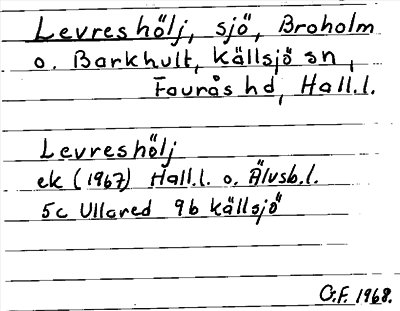 Levreshölj, sjö, Broholm
o. Barkhult, Källsjö sn,
Faurås hd, Hall.l.
Levreshölj
ek (1967) Hall.l. o. Älvsb.l.
5c Ullared 9b Källsjö
G.F. 1968.